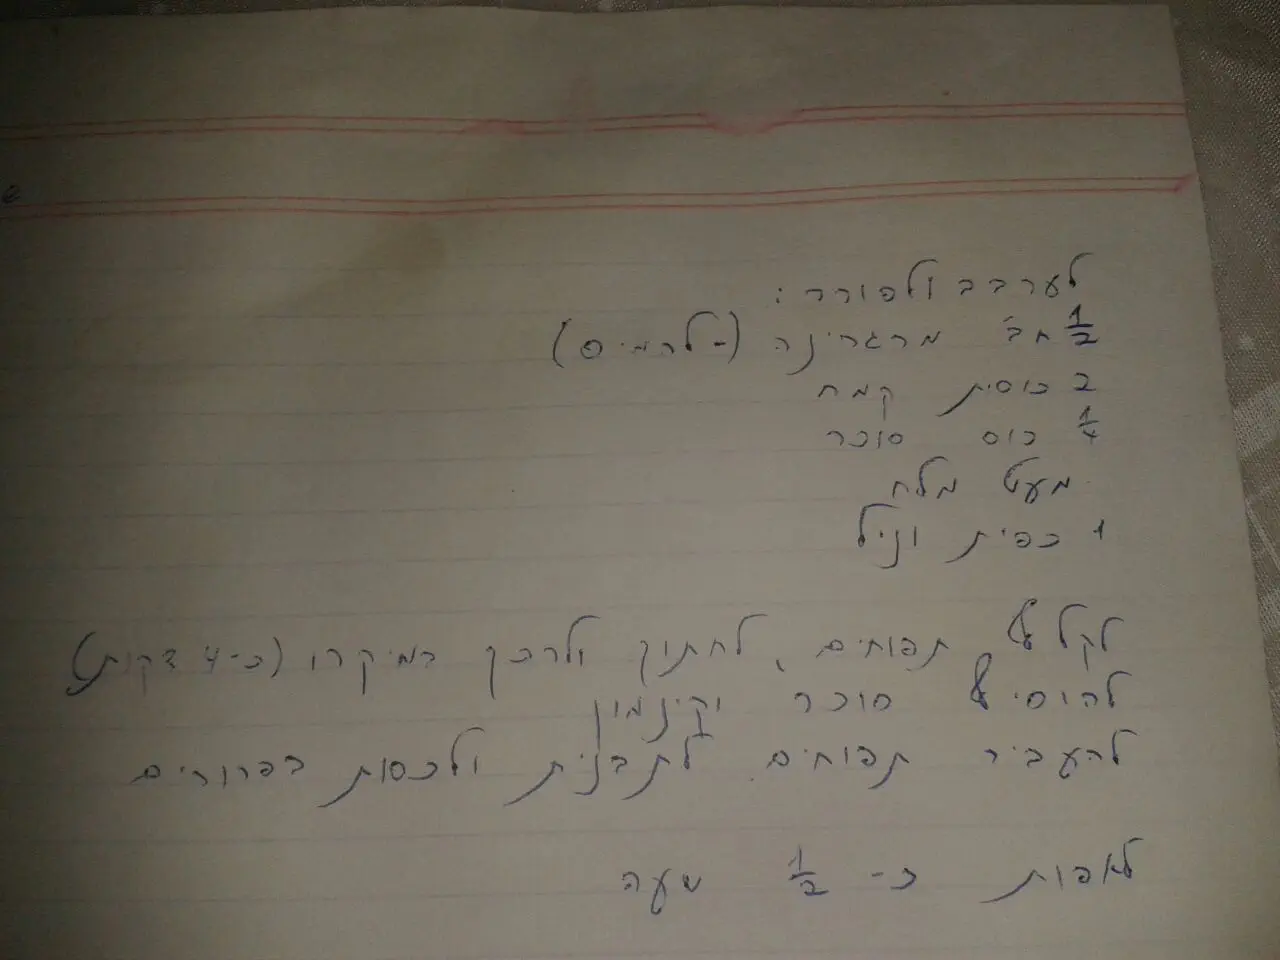 לערבב ולפורר:
1/2 חב' מרגרינה (-להמיס)
2 כוסות קמח
1/4 כוס סוכר
מעט מלח
1 כפית וניל
לקלף תפוחים, לחתוך ולרכך במיקרו (כ-4 דקות)
להוסיף סוכר וקינמון
להעביר תפוחים לתבנית ולכסות בפרורים
לאפות כ- 1/2 שעה